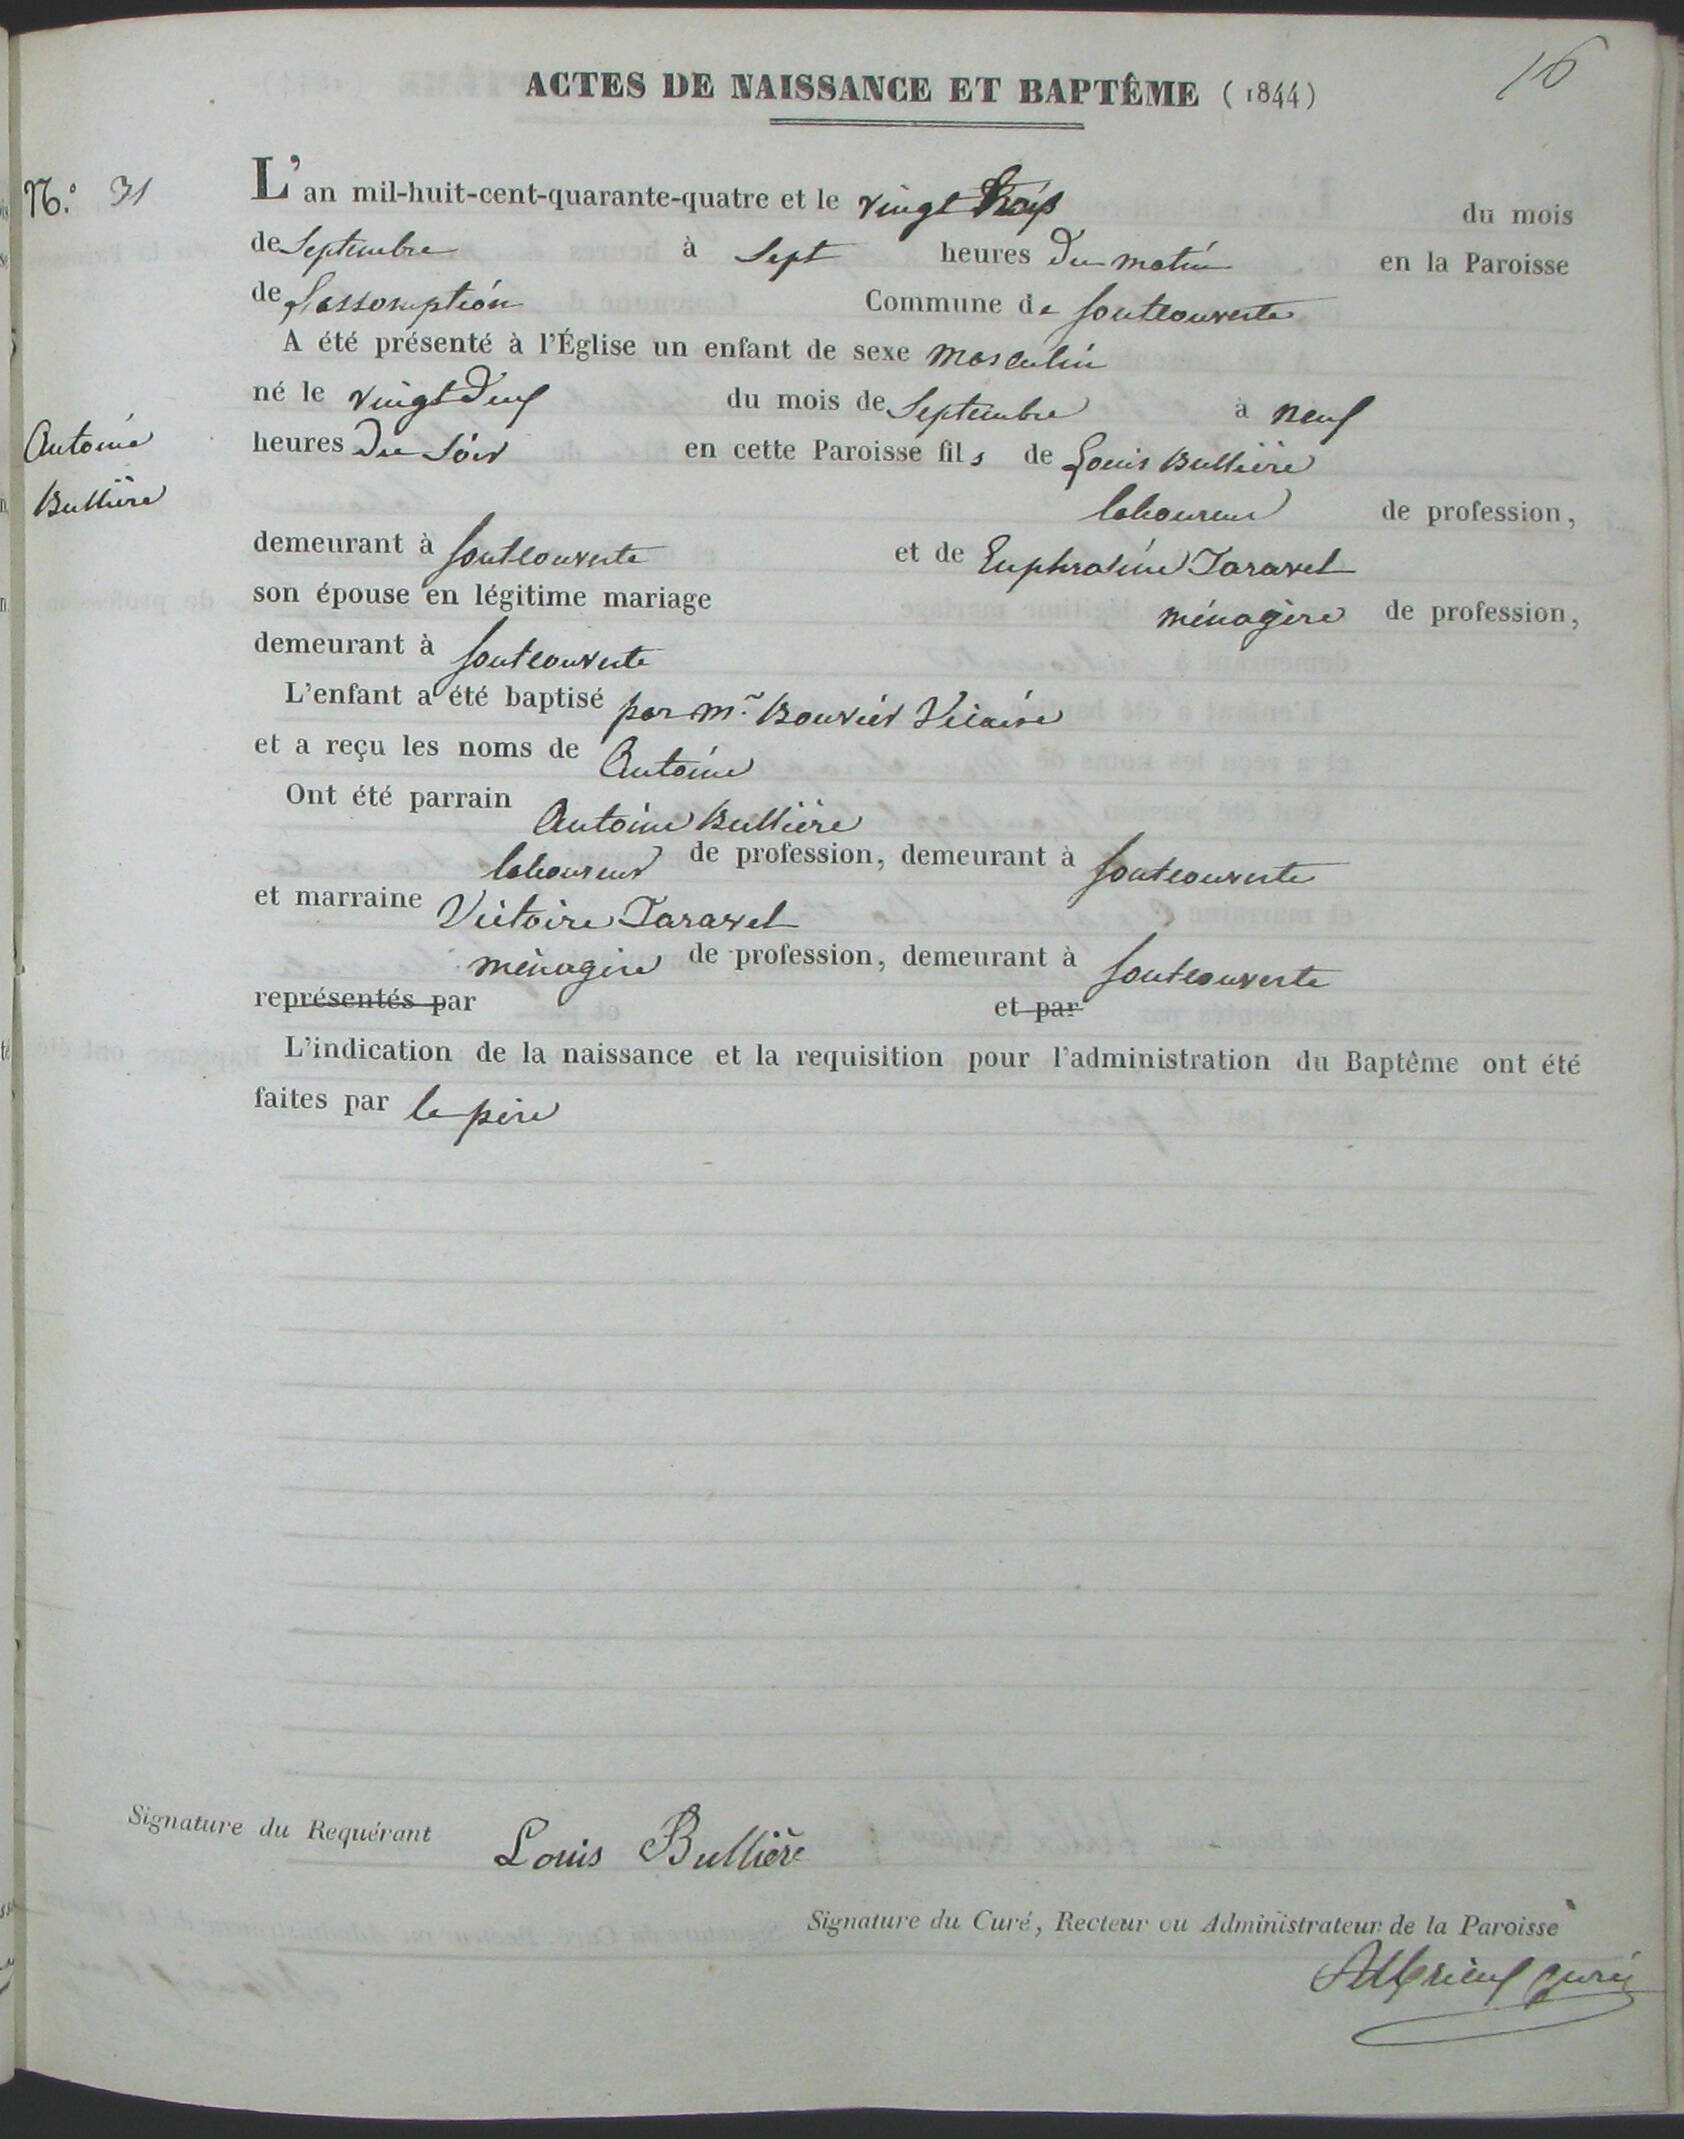 16
ACTES DE NAISSANCE ET BAPTÊME (1844)
N.º 31
L'an mil-huit-cent-quarante-quatre et le vingt trois du mois
de Septembre à Sept heures du matin en la Paroisse
de l'assomption Commune de fontcouverte
A été présenté à l'Église un enfant de sexe masculin
né le vingt deux du mois de Septembre à neuf
Antoine
heures du Soir en cette Paroisse fils de Louis Bullière
Bullière
laboureur de profession,
demeurant à fontcouverte et de Euphrasine Taravel
son épouse en légitime mariage ménagère de profession,
demeurant à fontcouverte
L'enfant a été baptisé par mr. Bouvier Vicaire
et a reçu les noms de Antoine
Ont été parrain Antoine Bullière
laboureur de profession, demeurant à fontcouverte
et marraine Victoire Taravel
ménagère de profession, demeurant à fontcouverte
représentés par et par
L'indication de la naissance et la requisition pour l'administration du Baptême ont été
faites par le père
Signature du Requérant Louis Bullière
Signature du Curé, Recteur ou Administrateur de la Paroisse
curé